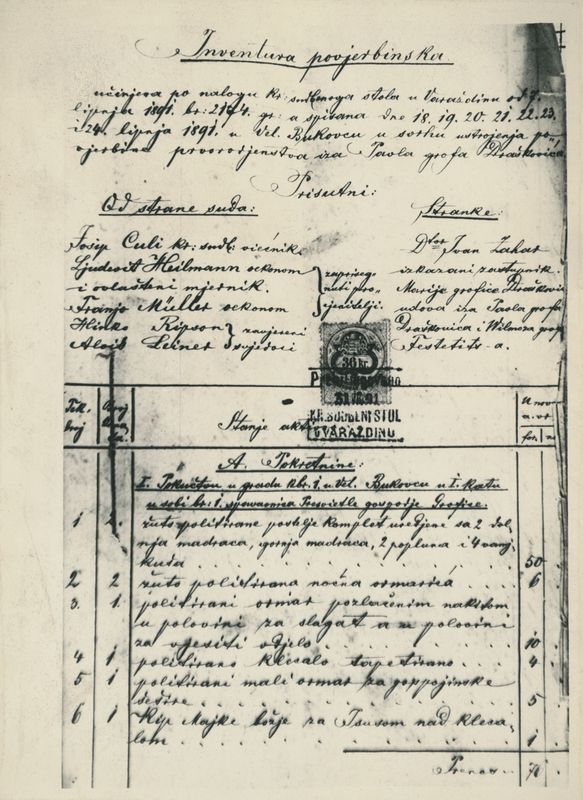 Inventura povjerbinska
učinjena po nalogu kr. sudbenoga stola u Varaždinu od 7.
lipnja 1891. br. 2164. gr: a spisana dne 18. 19. 20. 21. 22. 23.
i 24. lipnja 1891. u Vel. Bukovcu u svrhu ustrojenja po-
vjerbine prvorodjenstva iza Pavla grofa Draškovića
Prisutni:
Od strane suda:
Stranke:
Josip Culi kr: sudb: viećnik
Ljudevit Heilmann oekonom
i ovlašteni mjernik.
Franjo Müller oekonom
zapriseg-
nuti pro-
cjenitelji.
Hinko Ripson
Alois Leiner
zavjereni
svjedoci
Dtor Ivan Žakar
izkazani zastupnik
Marije grofice Draškovi
udova iza Pavla grofa
Draškovića i Wilmoza grof
Festetits-a.
36 kr.
31.XII.91
KR. SUDBENI STOL
U VARAŽDINU
Tek. broj
Broj
Stanje akt
U nov
a. vr
for.
A. Pokretnine:
I. Pokućtvo u gradu kbr. 1. u Vel. Bukovcu u I. katu
u sobi br. 1. spavaonica Presvietle gospodje Grofice.
1 2. žuto politirane postelje komplet uredjene sa 2 dol-
nja madraca, gornja madraca, 2 popluna i 4 vanj-
kuša . . . . . 50
2 2 žuto politirana noćna ormarića . . 6
3. 1. politirani ormar pozlaćenim nakitom
u polovini za slagat a u polovini
za vjesiti odjelo . . . . 10
4 1 politirano klecalo tapetirano . . . 4
5 1 politirani mali ormar za gospojinske
šešire . . . . . 5
6 1 Kip Majke božje sa Isusom nad kleca-
lom . . . . . 1
Prenos . . 7